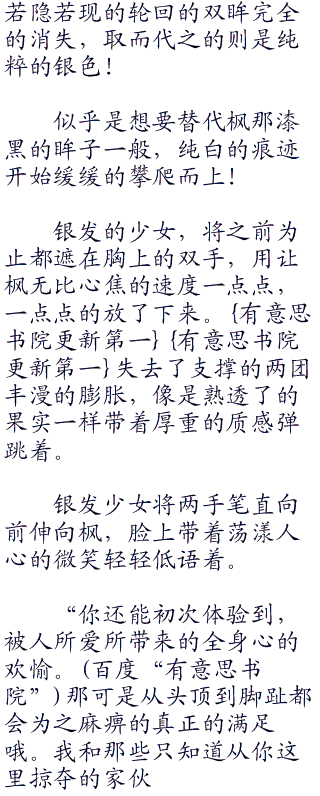 若隐若现的轮回的双眸完全
的消失，取而代之的则是纯
粹的银色！
似乎是想要替代枫那漆
黑的眸子一般，纯白的痕迹
开始缓缓的攀爬而上！
银发的少女，将之前为
止都遮在胸上的双手，用让
枫无比心焦的速度一点点，
一点点的放了下来。{有意思
书院更新第一}{有意思书院
更新第一}失去了支撑的两团
丰漫的膨胀，像是熟透了的
果实一样带着厚重的质感弹
跳着。
银发少女将两手笔直向
前伸向枫，脸上带着荡漾人
心的微笑轻轻低语着。
“你还能初次体验到，
被人所爱所带来的全身心的
欢愉。(百度“有意思书
院”)那可是从头顶到脚趾都
会为之麻痹的真正的满足
哦。我和那些只知道从你这
里掠夺的家伙